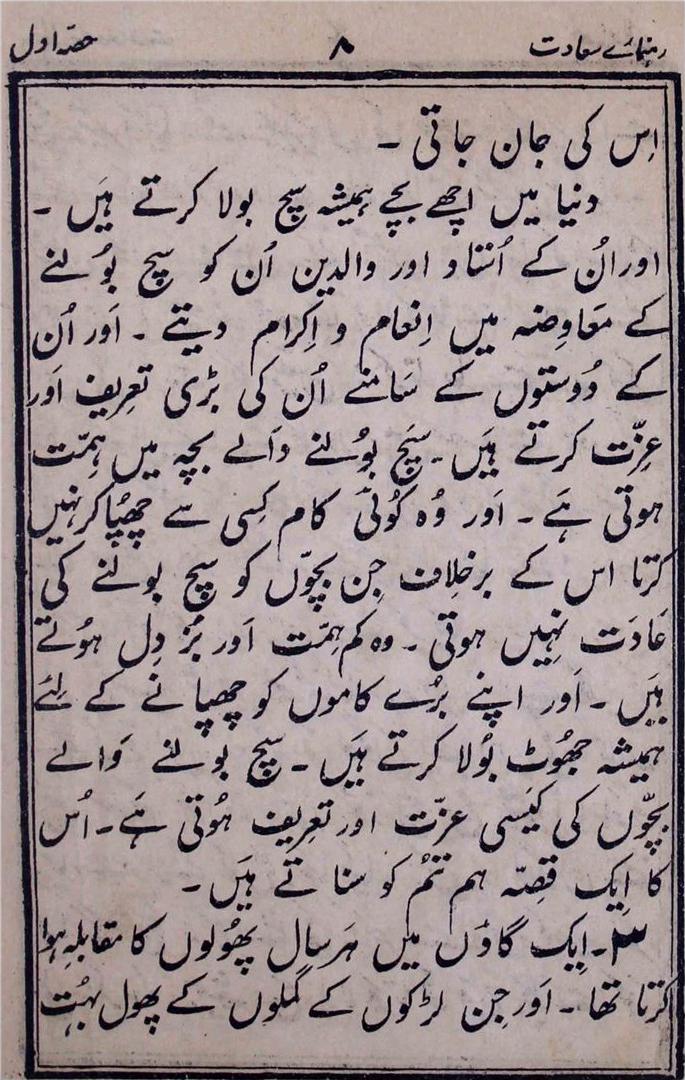 رہنمائے سعادت ۸ حصّہ اول
اِس کی جان جاتی ۔
دنیا میں اچھے بچے ہمیشہ سچ بولا کرتے ہیَں ۔
اور اُن کے اُستاد اور والدین اُن کو سچ بوُلنے
کے مَعاوِضہ میں اِنعام و اِکرام دیتے ۔ اَور اُن
کے دُوستوں کے سَامنے اُن کی بڑی تعرِیف اَور
عِزّت کرتے ہیَں ۔ سَچ بوُلنے وَالے بچہ میں ہِمّت
ہوتی ہَے ۔ اَور وُہ کوُئی کام کِسی سے چھُپا کر نہیں
کرتا اس کے برخلاف جِن بچّوں کو سچ بولنے کی
عَادَت نہِیں ہوتی ۔ وہ کم ہِمّت اَور بُز دِل ہوُتے
ہیَں ۔ اَور اپنے برُے کاموں کو چھپانے کے لِئے
ہمیشہ جھوُٹ بوُلا کرتے ہیَں ۔ سچ بولنے وَالے
بچّوں کی کیَسی عزّت اور تعرِیف ہوُتی ہَے ۔ اُس
کا اِیک قِصّہ ہم تمُ کو سناتے ہیَں ۔
۳ ۔ اِیک گاوُں میں ہَر سال پھوُلوں کا مقابلہ ہوا
کرتا تھا ۔ اَور جِن لڑکوں کے گملوں کے پھول بہُت